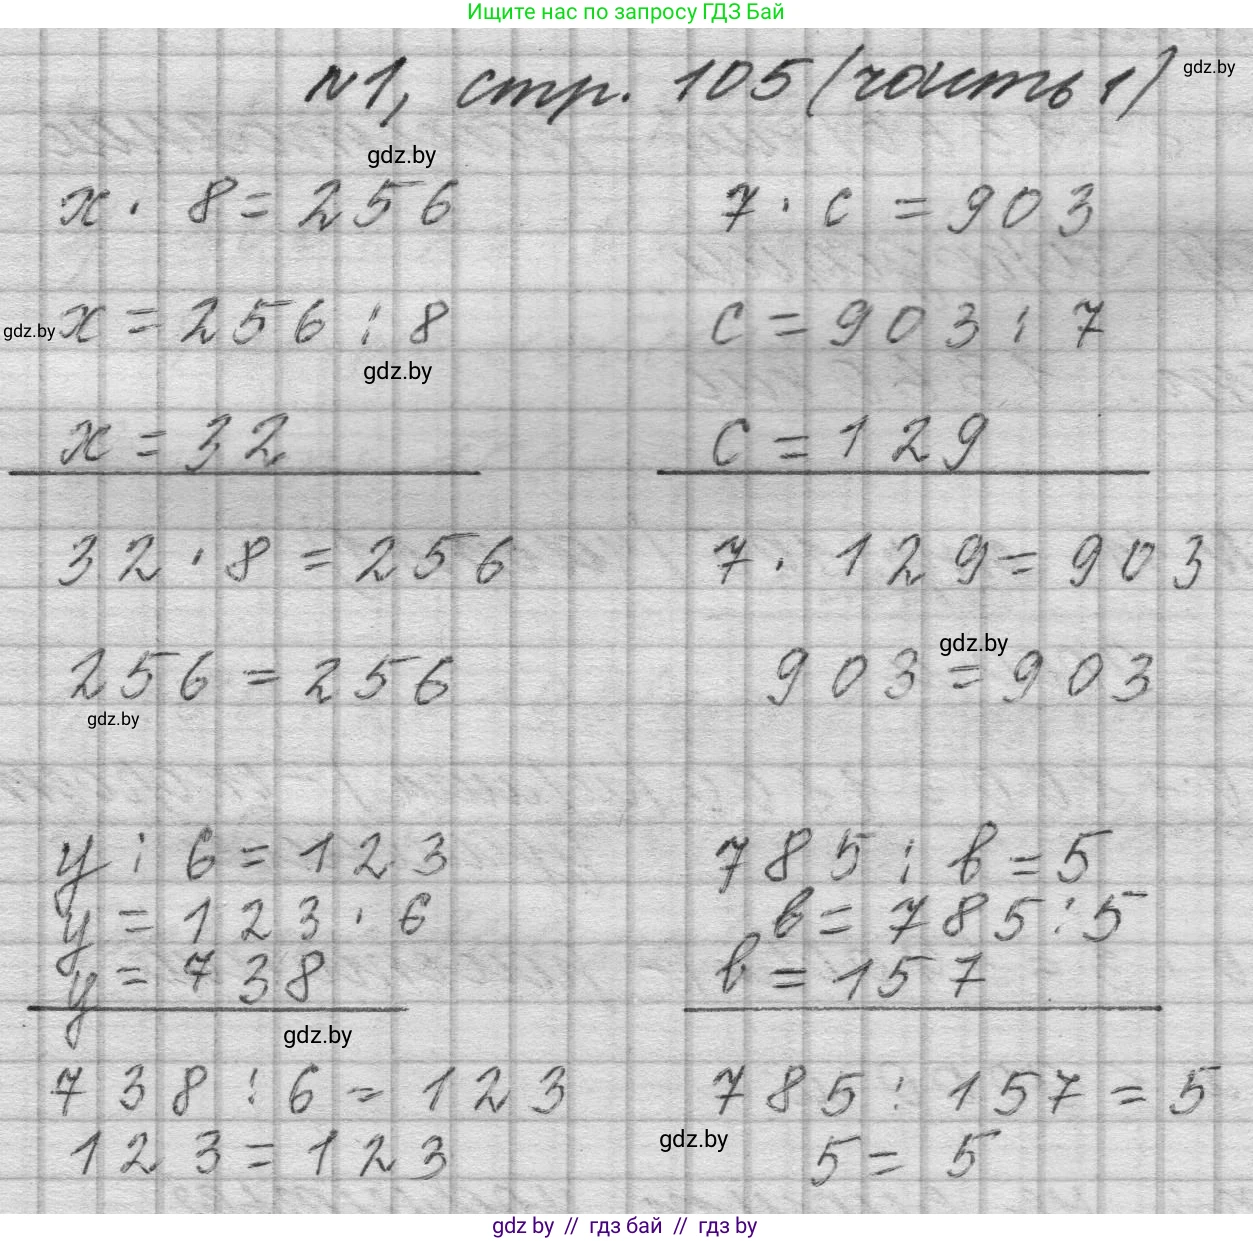 Ищите нас по запросу ГДЗ Бай
№1, стр. 105 (часть 1)
gdz.by
gdz.by
x · 8 = 256
7 · c = 903
gdz.by
x = 256 : 8
c = 903 : 7
gdz.by
x = 32
c = 129
32 · 8 = 256
7 · 129 = 903
gdz.by
256 = 256
903 = 903
gdz.by
y : 6 = 123
785 : b = 5
y = 123 · 6
b = 785 : 5
y = 738
b = 157
gdz.by
738 : 6 = 123
785 : 157 = 5
gdz.by
123 = 123
5 = 5
gdz by // гдз бай // гдз by